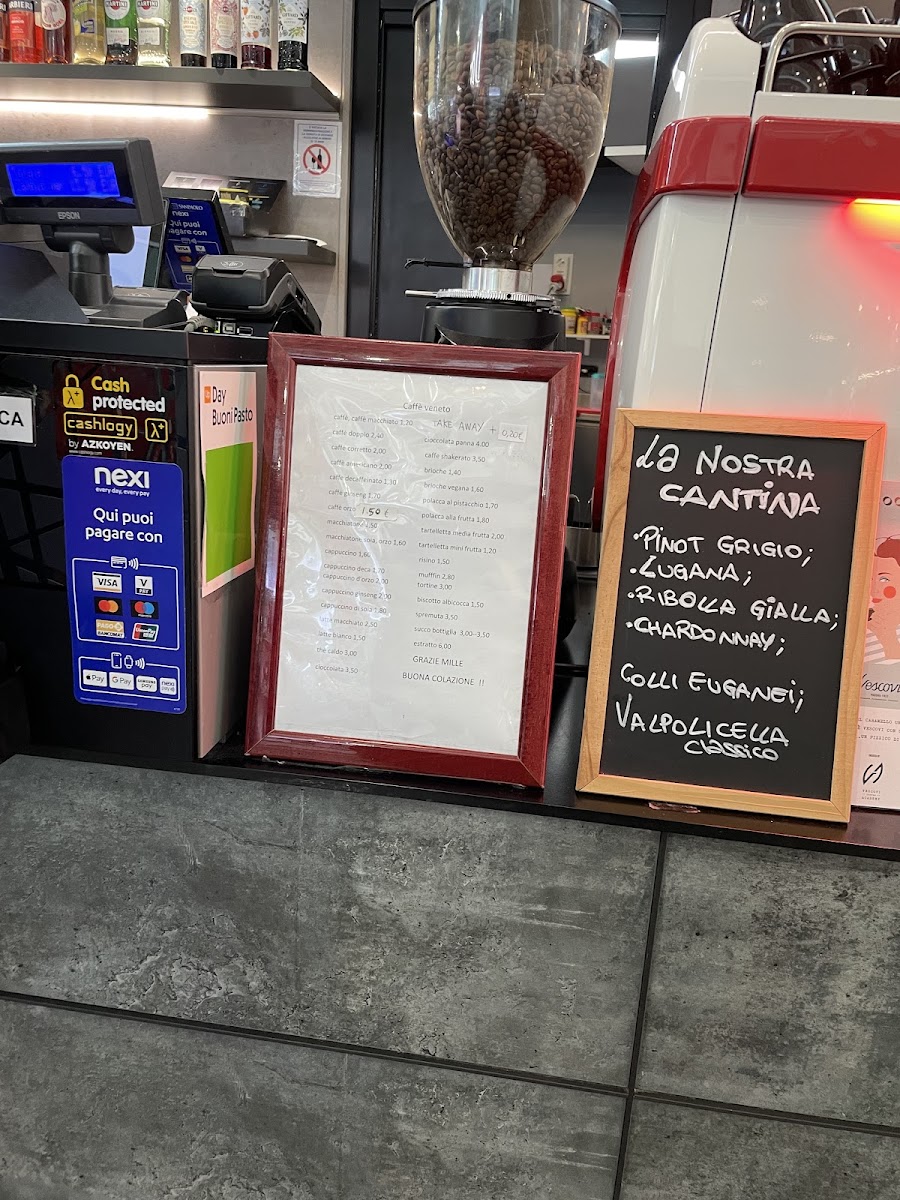 BARBIERI
MARTINI
MARTINI
EPSON
nexi
Qui puoi
pagare con
VISA
CA
Cash
protected
cashlogy
by AZKOYEN
nexi
every day, every pay
Qui puoi
pagare con
VISA
V PAY
PAGO
BANCOMAT
UnionPay
Apple Pay
G Pay
SAMSUNG pay
nexi
Day
Buoni Pasto
Caffè veneto
caffè, caffè macchiato 1,20
caffè doppio 2,40
caffè corretto 2,00
caffè americano 2,00
caffè decaffeinato 1,30
caffè ginseng 1,70
caffè orzo 1.50 €
macchiatone 1,50
macchiatone soia, orzo 1,60
cappuccino 1,60
cappuccino deca 1,70
cappuccino d'orzo 2,00
cappuccino ginseng 2,00
cappuccino di soia 1,80
latte macchiato 2,50
latte bianco 1,50
the caldo 3,00
cioccolata 3,50
TAKE AWAY + 0,20€
cioccolata panna 4.00
caffè shakerato 3,50
brioche 1,40
brioche vegana 1,60
polacca al pistacchio 1,70
polacca alla frutta 1,80
tartelletta media frutta 2,00
tartelletta mini frutta 1,20
risino 1,50
mufffin 2,80
tortine 3,00
biscotto albicocca 1,50
spremuta 3,50
succo bottiglia 3,00--3,50
estratto 6,00
GRAZIE MILLE
BUONA COLAZIONE !!
La NOSTRA
CANTINA
•PINOT GRIGIO;
•LUGANA;
•RIBOLLA GIALLA;
•CHARDONNAY;
COLLI EUGANEI;
VALPOLICELLA
CLASSICO